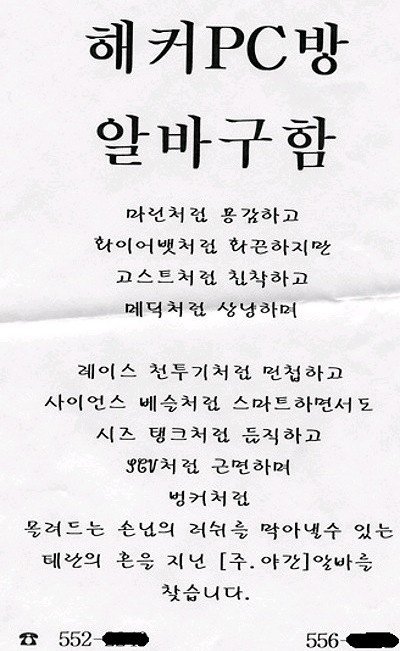 해커PC방
알바구함
마린처럼 용감하고
화이어뱃처럼 화끈하지만
고스트처럼 침착하고
메딕처럼 상냥하며
레이스 전투기처럼 민첩하고
사이언스 베슬처럼 스마트하면서도
시즈 탱크처럼 듬직하고
SCV처럼 근면하며
벙커처럼
몰려드는 손님의 러쉬를 막아낼수 있는
테란의 혼을 지닌 [주.야간]알바를
찾습니다.
☎ 552- 556-